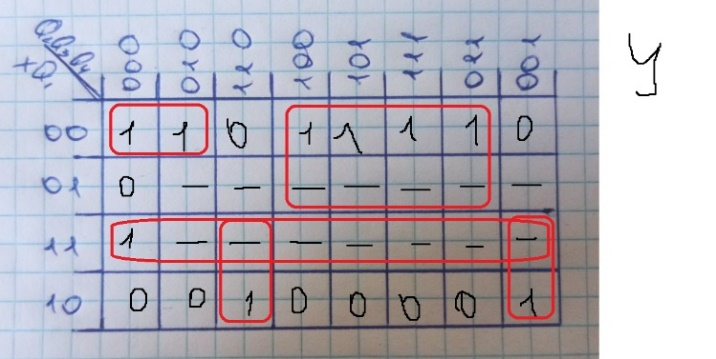 Q₂Q₃Q₄ 000 010 110 100 101 111 011 001 y
xQ₁
00 1 1 0 1 1 1 1 0
01 0 — — — — — — —
11 1 — — — — — — —
10 0 0 1 0 0 0 0 1